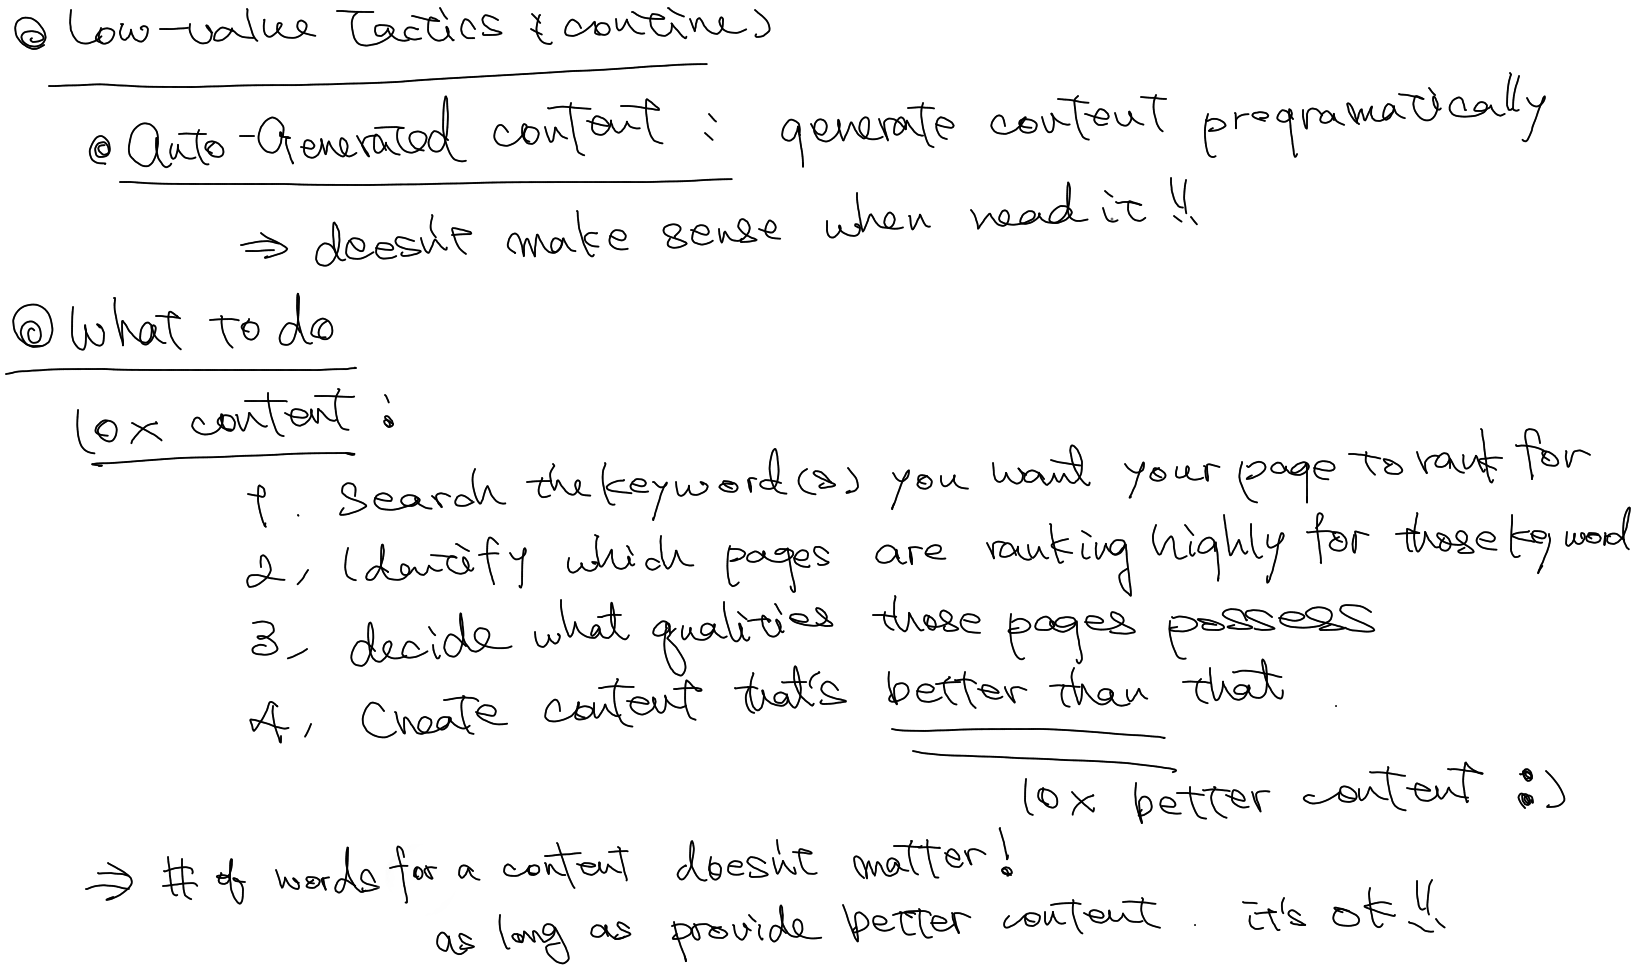 ◎ Low-value Tactics (contine)
◎ Auto-Generated content : generate content programatically
⇒ doesn't make sense when read it !!
◎ What to do
10x content :
1. Search the keyword(s) you want your page to rank for
2, Identify which pages are ranking highly for those keyword
3, decide what qualities those pages possess
4, Create content that's better than that.
10x better content :)
⇒ # of words for a content doesn't matter!
as long as provide better content. it's ok !!